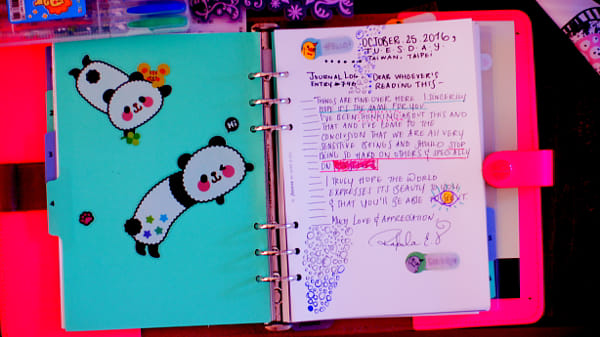 Hi
HELLO!
OCTOBER.25.2016,
T.U.E.S.D.A.Y.
TAIWAN, TAIPEI
JOURNAL LOG
ENTRY
DEAR WHOEVER'S
READING THIS~
THINGS ARE FINE OVER HERE. I SINCERELY
HOPE IT'S THE SAME FOR YOU.
I'VE BEEN THINKING ABOUT THIS AND
THAT AND I'VE COME TO THE
CONCLUSION THAT WE ARE ALL VERY
SENSITIVE BEINGS AND SHOULD STOP
BEING SO HARD ON OTHERS & SPECIALLY
ON
I TRULY HOPE THE WORLD
EXPRESSES ITS BEAUTY
& THAT YOU'LL BE ABLE
SEE IT
MUCH LOVE & APPRECIATION,